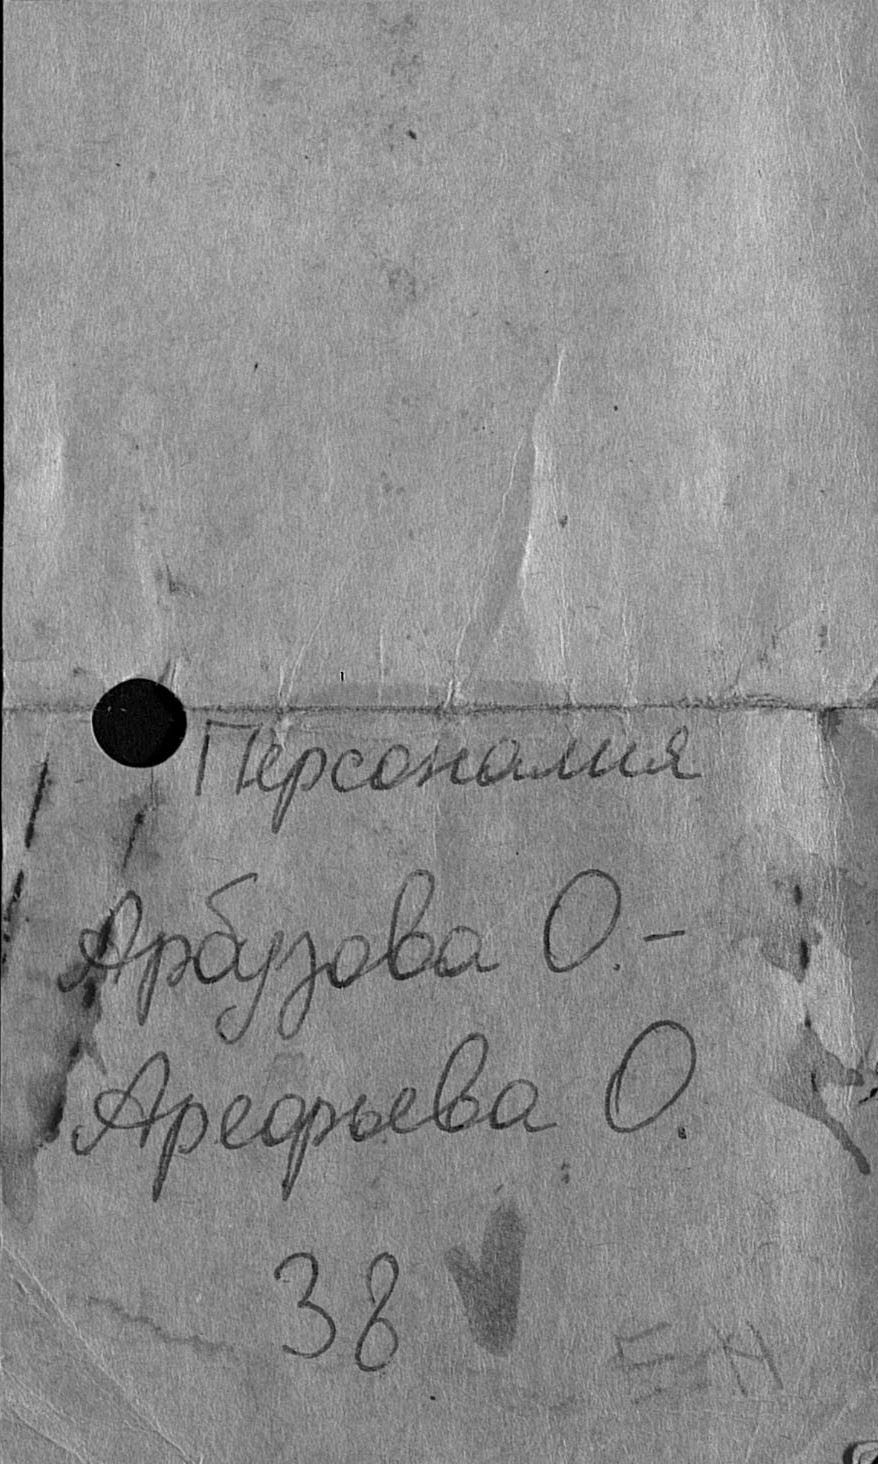 Персоналия
Арбузова О.-
Арефьева О.
38
ЕН